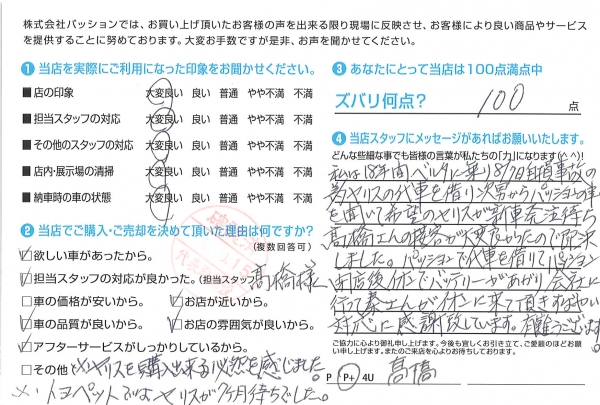 株式会社パッションでは、お買い上げ頂いたお客様の声を出来る限り現場に反映させ、お客様により良い商品やサービス
を提供することに努めております。大変お手数ですが是非、お声を聞かせてください。
❶ 当店を実際にご利用になった印象をお聞かせください。
■ 店の印象 大変良い 良い 普通 やや不満 不満
■ 担当スタッフの対応 大変良い 良い 普通 やや不満 不満
■ その他のスタッフの対応 大変良い 良い 普通 やや不満 不満
■ 店内・展示場の清掃 大変良い 良い 普通 やや不満 不満
■ 納車時の車の状態 大変良い 良い 普通 やや不満 不満
❷ 当店でご購入・ご売却を決めて頂いた理由は何ですか?
(複数回答可)
☑欲しい車があったから。
☑担当スタッフの対応が良かった。(担当スタッフ 高橋様)
□車の価格が安いから。 □お店が近いから。
☑車の品質が良いから。 ☑お店の雰囲気が良いから。
☑アフターサービスがしっかりしているから。
□その他 ※ヤリスを購入出来る必然を感じました。
※トヨペットではヤリスが7ヶ月待ちでした。
❸ あなたにとって当店は100点満点中
ズバリ何点? 100 点
❹ 当店スタッフにメッセージがあればお願いいたします。
どんな些細な事でも皆様の言葉が私たちの「力」になります(^^)!
私は18年間ベルタに乗り8/7自損事故の
為ヤリスの代車を借り次男からパッションの事
を聞いて希望のヤリスが新車発注待ち
高橋さんの接客が大変良かったので即決
しました。パッションで代車を借りてパッション
閉店後イオンでバッテリーがあがり会社に
行って さんがイオンに来て頂きすばやい
対応に感謝致しています。有難うございます。
ご協力に心より御礼申し上げます。今後も宜しくお引き立て、ご愛顧のほどお願
い申し上げます。またのご来店を心よりお待ちしております。
P P+ 4U 高橋